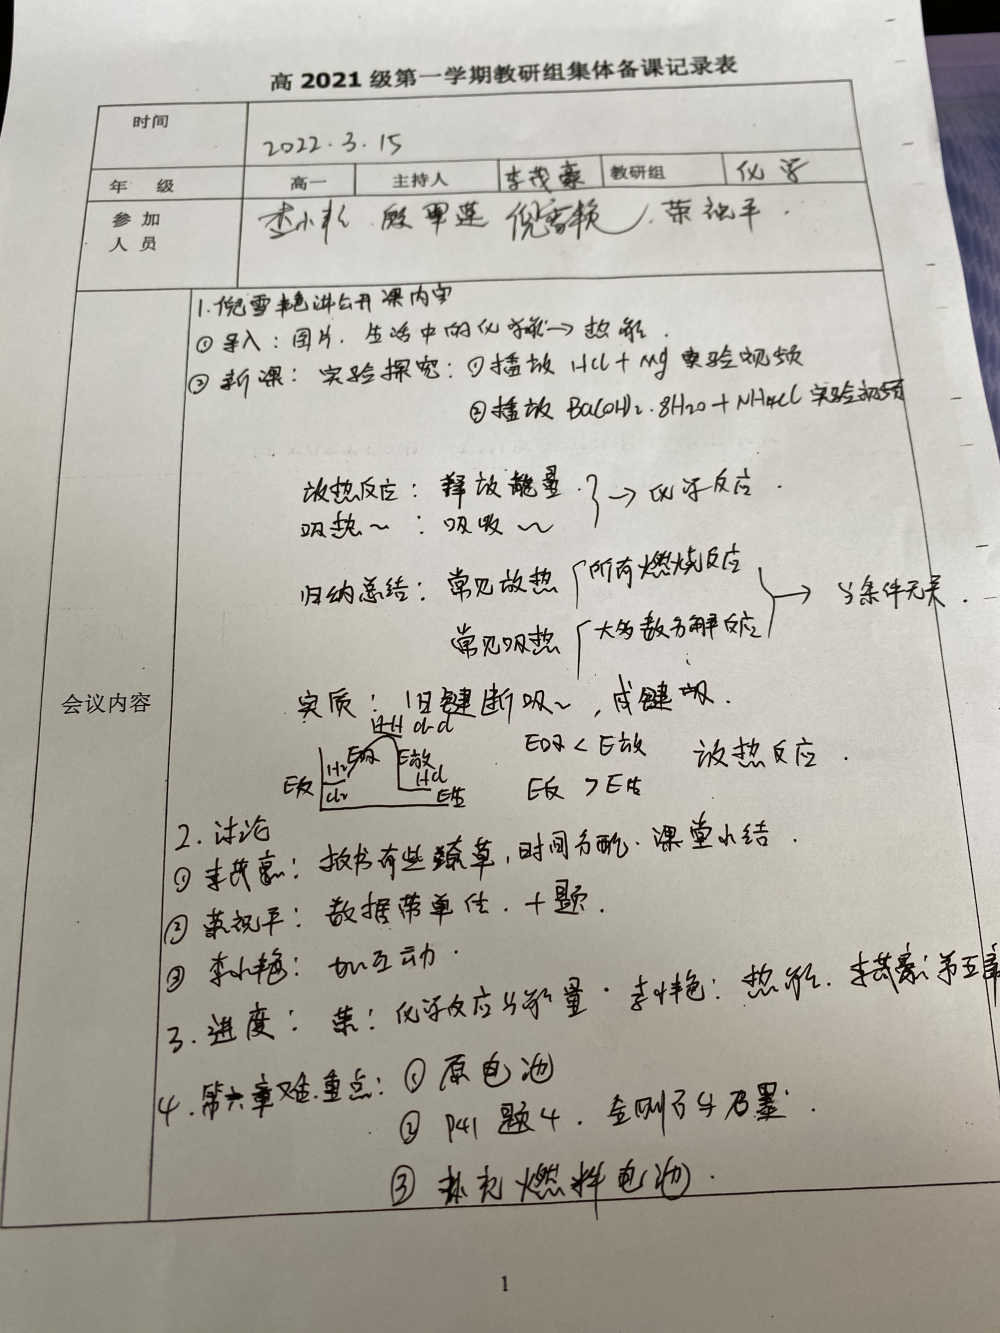 高 2021 级第一学期教研组集体备课记录表
时间
2022.3.15
年 级 高一 主持人 李茂豪 教研组 化学
参加
人员
李小艳 殷翠莲 倪雪艳 荣祝平.
会议内容
1.倪雪艳讲公开课内容
① 导入: 图片. 生活中的化学能→热能.
② 新课: 实验探究: ①播放 HCl + Mg 实验视频
②播放 Ba(OH)2.8H2O + NH4Cl 实验视频
放热反应: 释放能量. } → 化学反应.
吸热~ : 吸收 ~
归纳总结: 常见放热 { 所有燃烧反应
常见吸热 { 大多数分解反应 } → 与条件无关.
实质: 旧键断吸~, 成键
H-H Cl-Cl
E反 H2 Cl2 E吸 E放 HCl E生
E吸 < E放 放热反应.
E反 > E生
2. 讨论
① 李茂豪: 板书有些潦草, 时间分配. 课堂小结.
② 荣祝平: 数据带单位. 十题.
③ 李小艳: 加互动.
3. 进度: 荣: 化学反应与能量. 李小艳: 热能. 李茂豪: 第五章
4. 第六章难.重点: ① 原电池
② P41 题4. 金刚石与石墨.
③ 补充燃料电池.
1